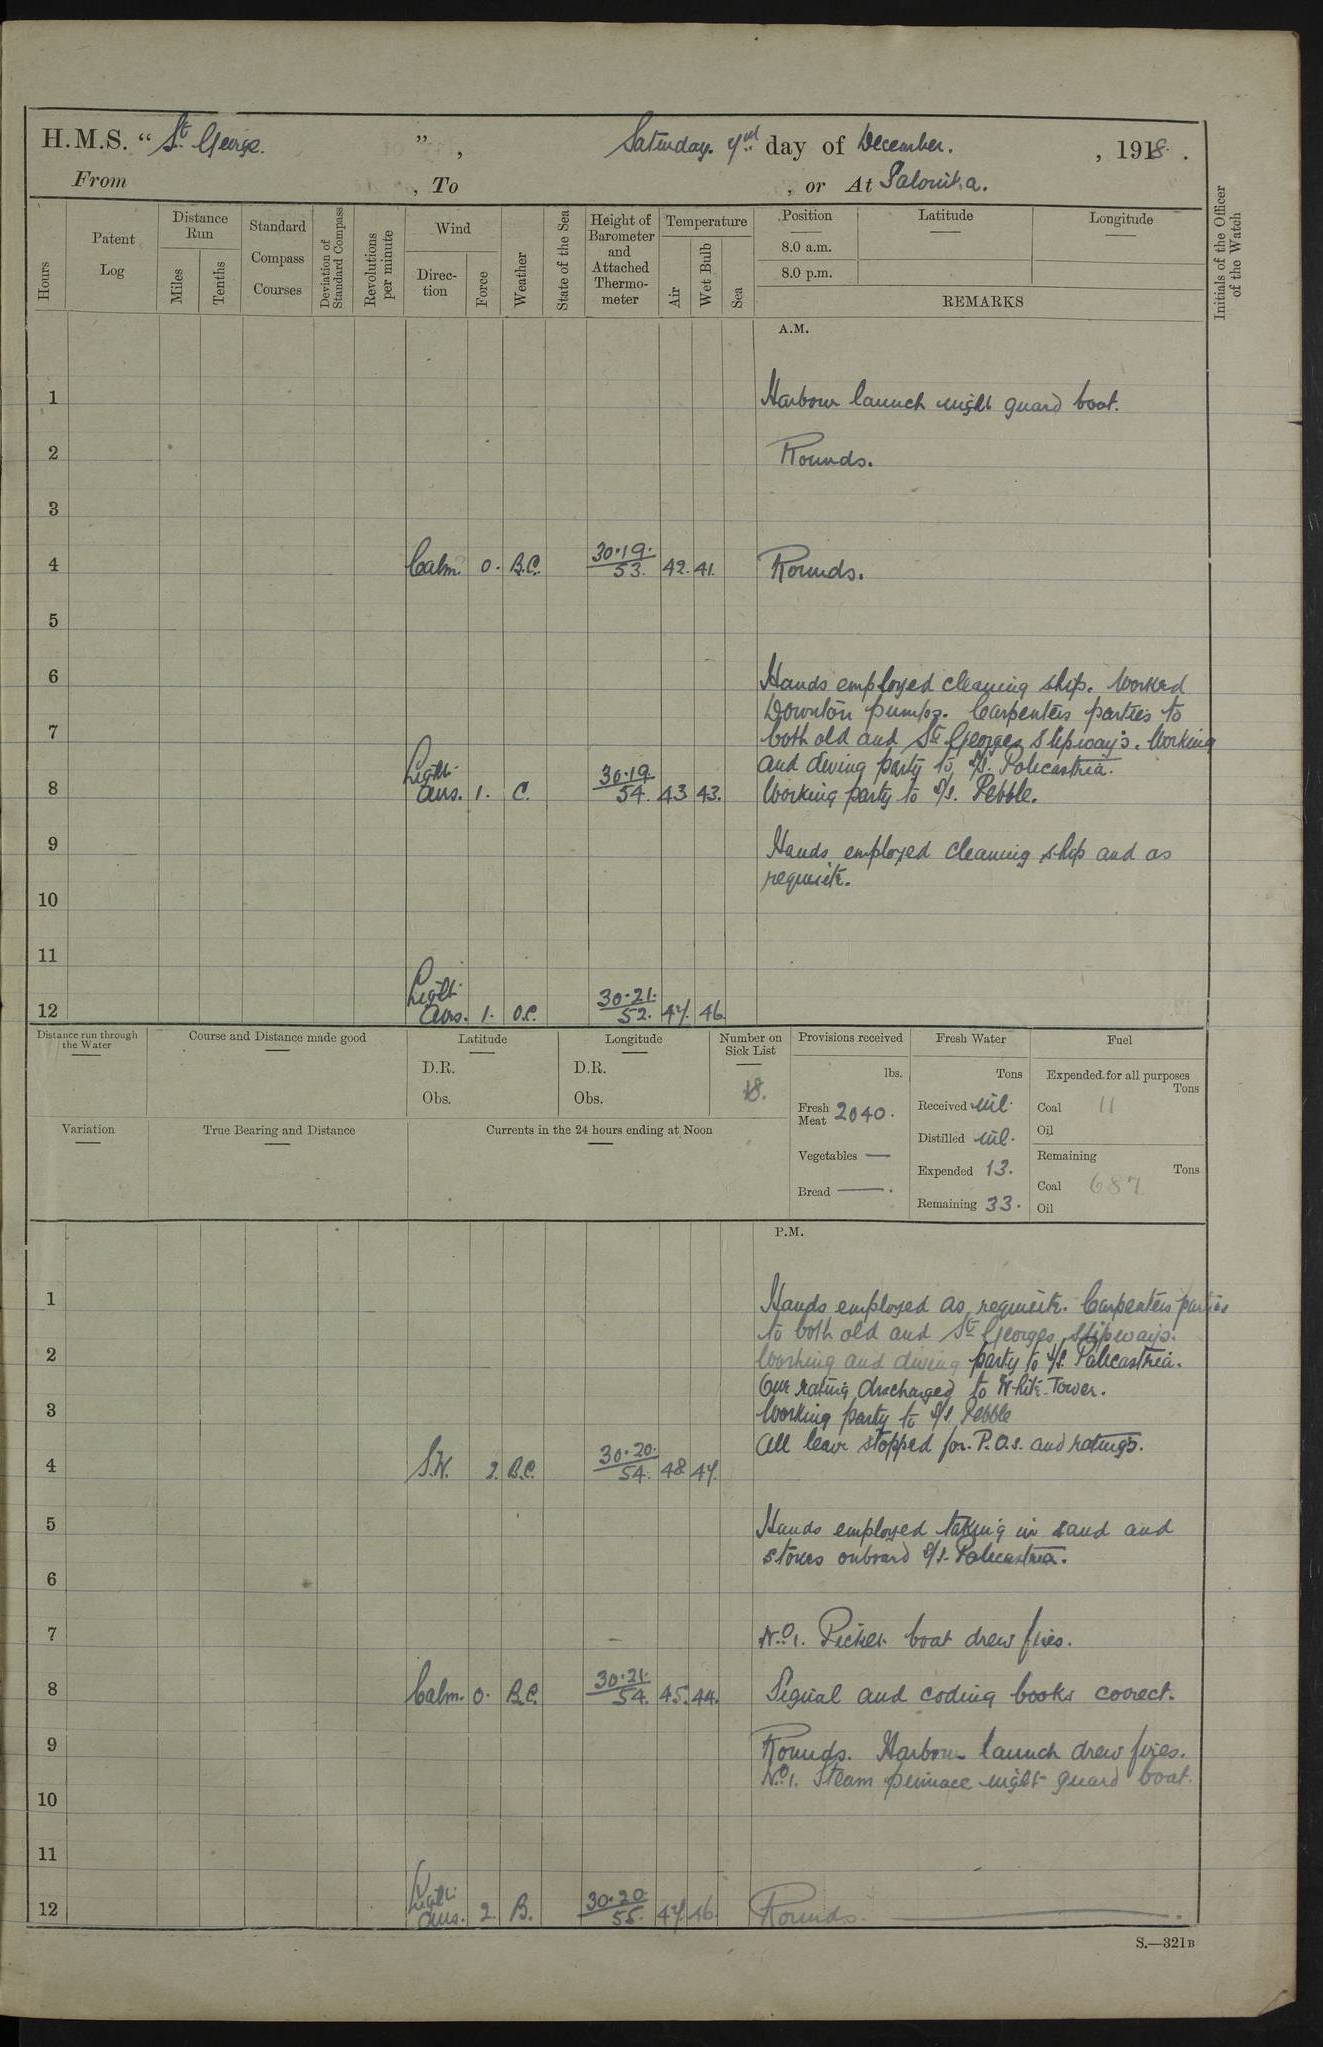 H.M.S. "St. George.", Saturday. 7th day of December., 1918.
From , To , or At Salonika.
Hours
Patent Log
Distance Run
Miles
Tenths
Standard Compass Courses
Deviation of Standard Compass
Revolutions per minute
Wind
Direction
Force
Weather
State of the Sea
Height of Barometer and Attached Thermometer
Temperature
Air
Wet Bulb
Sea
Position
8.0 a.m.
8.0 p.m.
Latitude
Longitude
REMARKS
Initials of the Officer of the Watch
A.M.
1 Harbour launch night guard boat.
2 Rounds.
3
4 Calm. 0. B.C. 30.19. 53. 42. 41. Rounds.
5
6 Hands employed cleaning ship. Worked
Downton pumps. Carpenters parties to
7 both old and St. Georges slipway's. Working
and diving party to S/S. Policastria.
8 Light airs. 1. C. 30.19. 54. 43 43. Working party to S/S. Pebble.
9 Hands employed cleaning ship and as
requisite.
10
11
12 Light airs. 1. O.C. 30.21. 52. 47. 46.
Distance run through the Water
Course and Distance made good
Latitude
D.R.
Obs.
Longitude
D.R.
Obs.
Number on Sick List
18.
Provisions received
lbs.
Fresh Meat 2040.
Vegetables —
Bread — .
Fresh Water
Tons
Received nil.
Distilled nil.
Expended 13.
Remaining 33.
Fuel
Expended for all purposes
Tons
Coal 11
Oil
Remaining
Tons
Coal 687
Oil
Variation
True Bearing and Distance
Currents in the 24 hours ending at Noon
P.M.
1 Hands employed as requisite. Carpenters parties
to both old and St. Georges slipways.
2 Working and diving party to S/S. Policastria.
One rating discharged to White Tower.
3 Working party to S/S. Pebble
All leave stopped for P.O.s. and ratings.
4 S.W. 2. B.C. 30.20. 54. 48 47.
5 Hands employed taking in sand and
stones onboard S/S. Policastria.
6
7 No. 1. Picket boat drew fires.
8 Calm. 0. B.C. 30.21. 54. 45. 44. Signal and coding books correct.
9 Rounds. Harbour launch drew fires.
No. 1. Steam pinnace night guard boat.
10
11
12 Light airs. 2. B. 30.20. 55. 47. 46. Rounds.
S.—321B